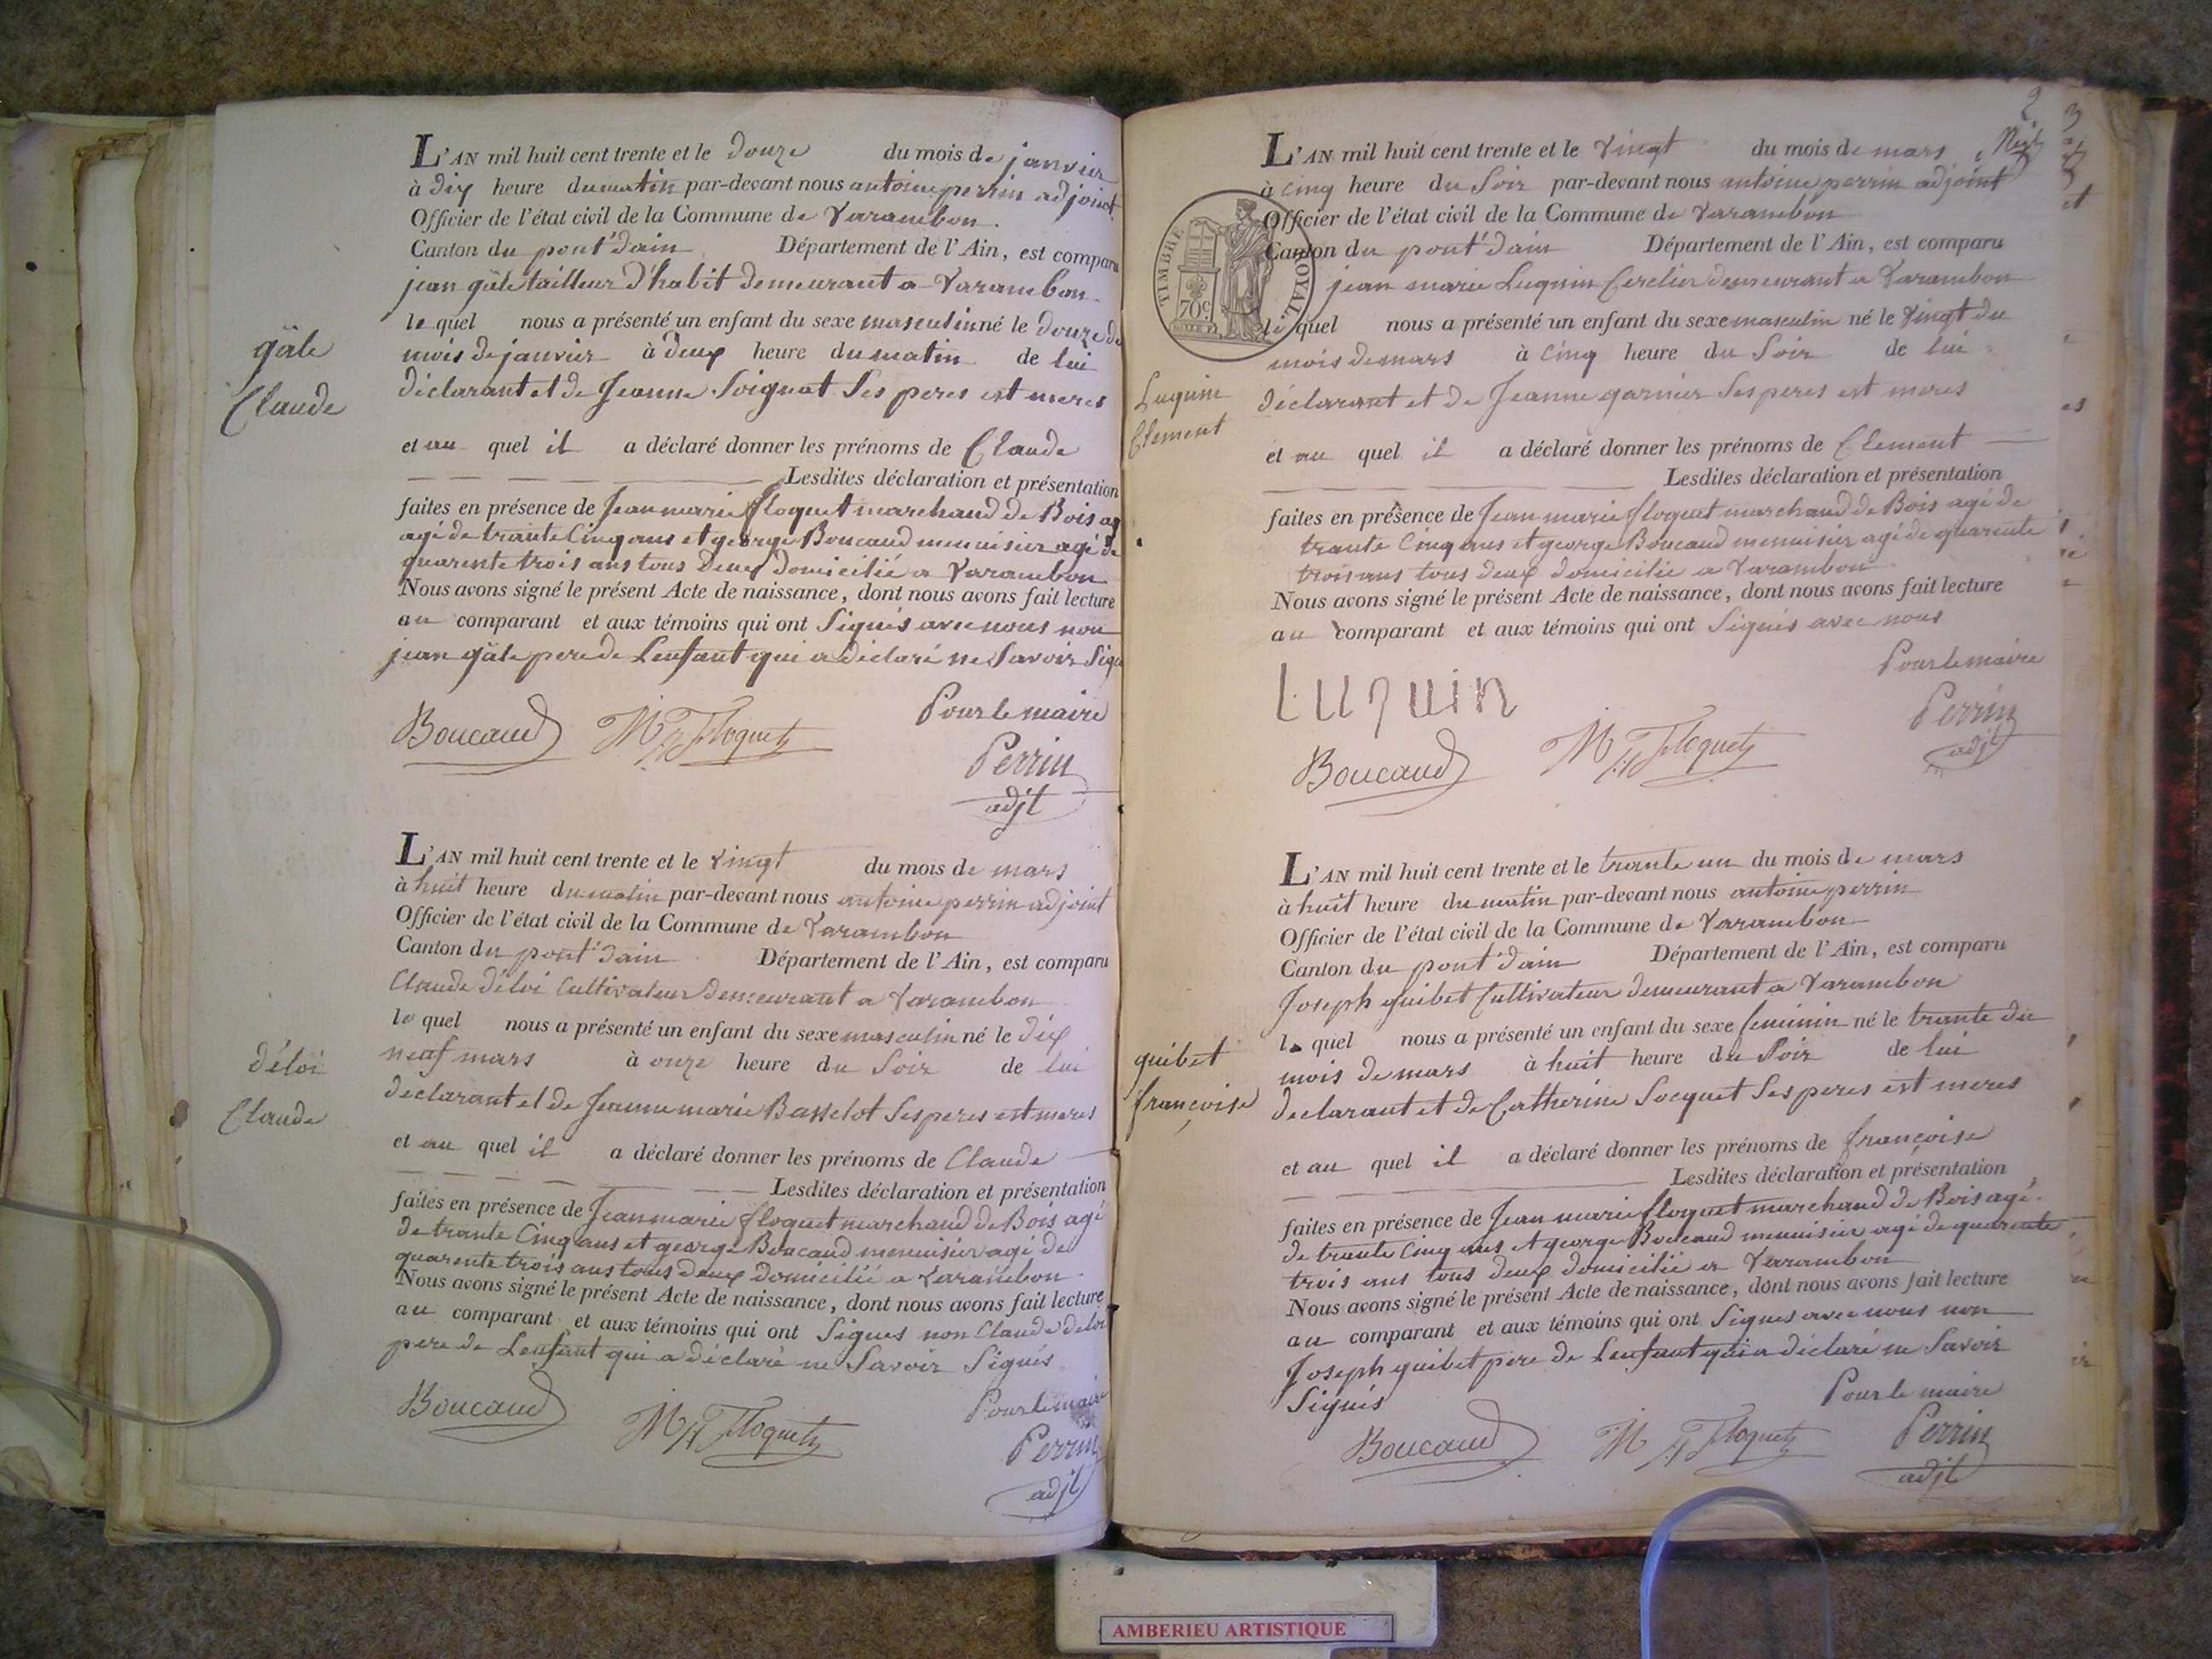 gäle
Claude
L'AN mil huit cent trente et le douze du mois de janvier
à dix heure du matin par-devant nous antoine perrin adjoint
Officier de l'état civil de la Commune de Varambon.
Canton du pont d'ain Département de l'Ain, est comparu
jean gäle tailleur d'habit demeurant a Varambon
le quel nous a présenté un enfant du sexe masculin né le douze du
mois de janvier à deux heure du matin de lui
déclarant et de Jeanne Soignat Ses peres est meres
et au quel il a déclaré donner les prénoms de Claude
Lesdites déclaration et présentation
faites en présence de Jean marie floquet marchand de Bois ag
agé de trante Cinq ans et george Boucaud menuisier agé de
quarente trois ans tous deux domicilié a Varambon
Nous avons signé le présent Acte de naissance, dont nous avons fait lecture
au comparant et aux témoins qui ont Signés avec nous non
jean gäle pere de Lenfant qui a déclaré ne Savoir Sign
Boucaud Floquet Pour le maire
Perrin
adjt
déloi
Claude
L'AN mil huit cent trente et le vingt du mois de mars
à huit heure du matin par-devant nous antoine perrin adjoint
Officier de l'état civil de la Commune de Varambon
Canton du pont d'ain Département de l'Ain, est comparu
Claude déloi Cultivateur demeurant a Varambon
le quel nous a présenté un enfant du sexe masculin né le dix
neuf mars à onze heure du Soir de lui
déclarant et de Jeanne marie Basselot Ses peres est meres
et au quel il a déclaré donner les prénoms de Claude
Lesdites déclaration et présentation
faites en présence de Jean marie floquet marchand de Bois agé
de trante Cinq ans et george Boucaud menuisier agé de
quarente trois ans tous deux domicilié a Varambon
Nous avons signé le présent Acte de naissance, dont nous avons fait lecture
au comparant et aux témoins qui ont Signés non Claude déloi
pere de Lenfant qui a déclaré ne Savoir Signés
Boucaud Floquet Pour le maire
Perrin
adjt
2
L'AN mil huit cent trente et le vingt du mois de mars
à cinq heure du Soir par-devant nous antoine perrin adjoint
Officier de l'état civil de la Commune de Varambon
Canton du pont d'ain Département de l'Ain, est comparu
TIMBRE ROYAL
70c.
jean marie Luquin Cerclier demeurant a Varambon
le quel nous a présenté un enfant du sexe masculin né le vingt du
mois de mars à cinq heure du Soir de lui
Luquin
Clement
déclarant et de Jeanne garnier Ses peres est meres
et au quel il a déclaré donner les prénoms de Clement
Lesdites déclaration et présentation
faites en présence de Jean marie floquet marchand de Bois agé de
trante Cinq ans et george Boucaud menuisier agé de quarente
trois ans tous deux domicilié a Varambon
Nous avons signé le présent Acte de naissance, dont nous avons fait lecture
au comparant et aux témoins qui ont Signés avec nous
Pour le maire
Luquin
Perrin
adjt
Boucaud Floquet
L'AN mil huit cent trente et le trante un du mois de mars
à huit heure du matin par-devant nous antoine perrin
Officier de l'état civil de la Commune de Varambon
Canton du pont d'ain Département de l'Ain, est comparu
Joseph guibet Cultivateur demeurant a Varambon
le quel nous a présenté un enfant du sexe feminin né le trante du
mois de mars à huit heure du Soir de lui
guibet
françoise
declarant et de Catherine Socquet Ses peres est meres
et au quel il a déclaré donner les prénoms de françoise
Lesdites déclaration et présentation
faites en présence de Jean marie floquet marchand de Bois agé
de trante Cinq ans et george Boucaud menuisier agé de quarente
trois ans tous deux domicilié a Varambon
Nous avons signé le présent Acte de naissance, dont nous avons fait lecture
au comparant et aux témoins qui ont Signés avec nous non
Joseph guibet pere de Lenfant qui a déclaré ne Savoir
Signés
Pour le maire
Boucaud Floquet Perrin
adjt
AMBERIEU ARTISTIQUE